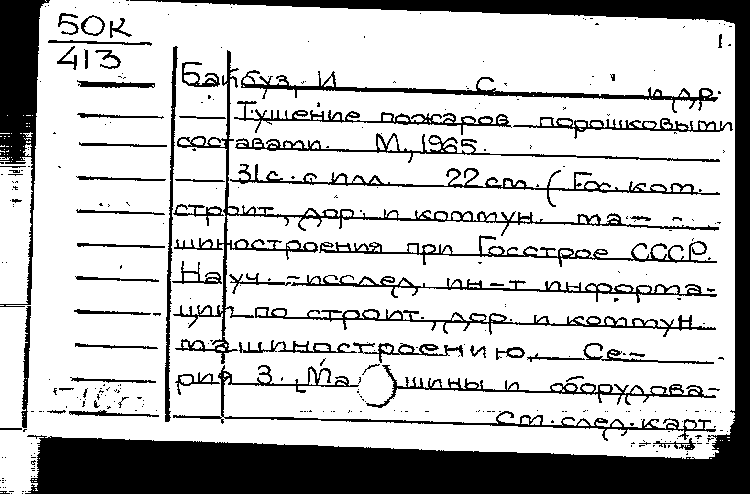 50К
413
1.
Байбуз, И С. и др.
Тушение пожаров порошковыми
составами. М., 1965.
31с. с илл. 22 см. (Гос. ком.
строит., дор. и коммун. ма-
шиностроения при Госстрое СССР.
Науч.-исслед. ин-т информа-
ции по строит., дор. и коммун.
машиностроению. Се-
рия 3. Машины и оборудова-
см. след. карт.